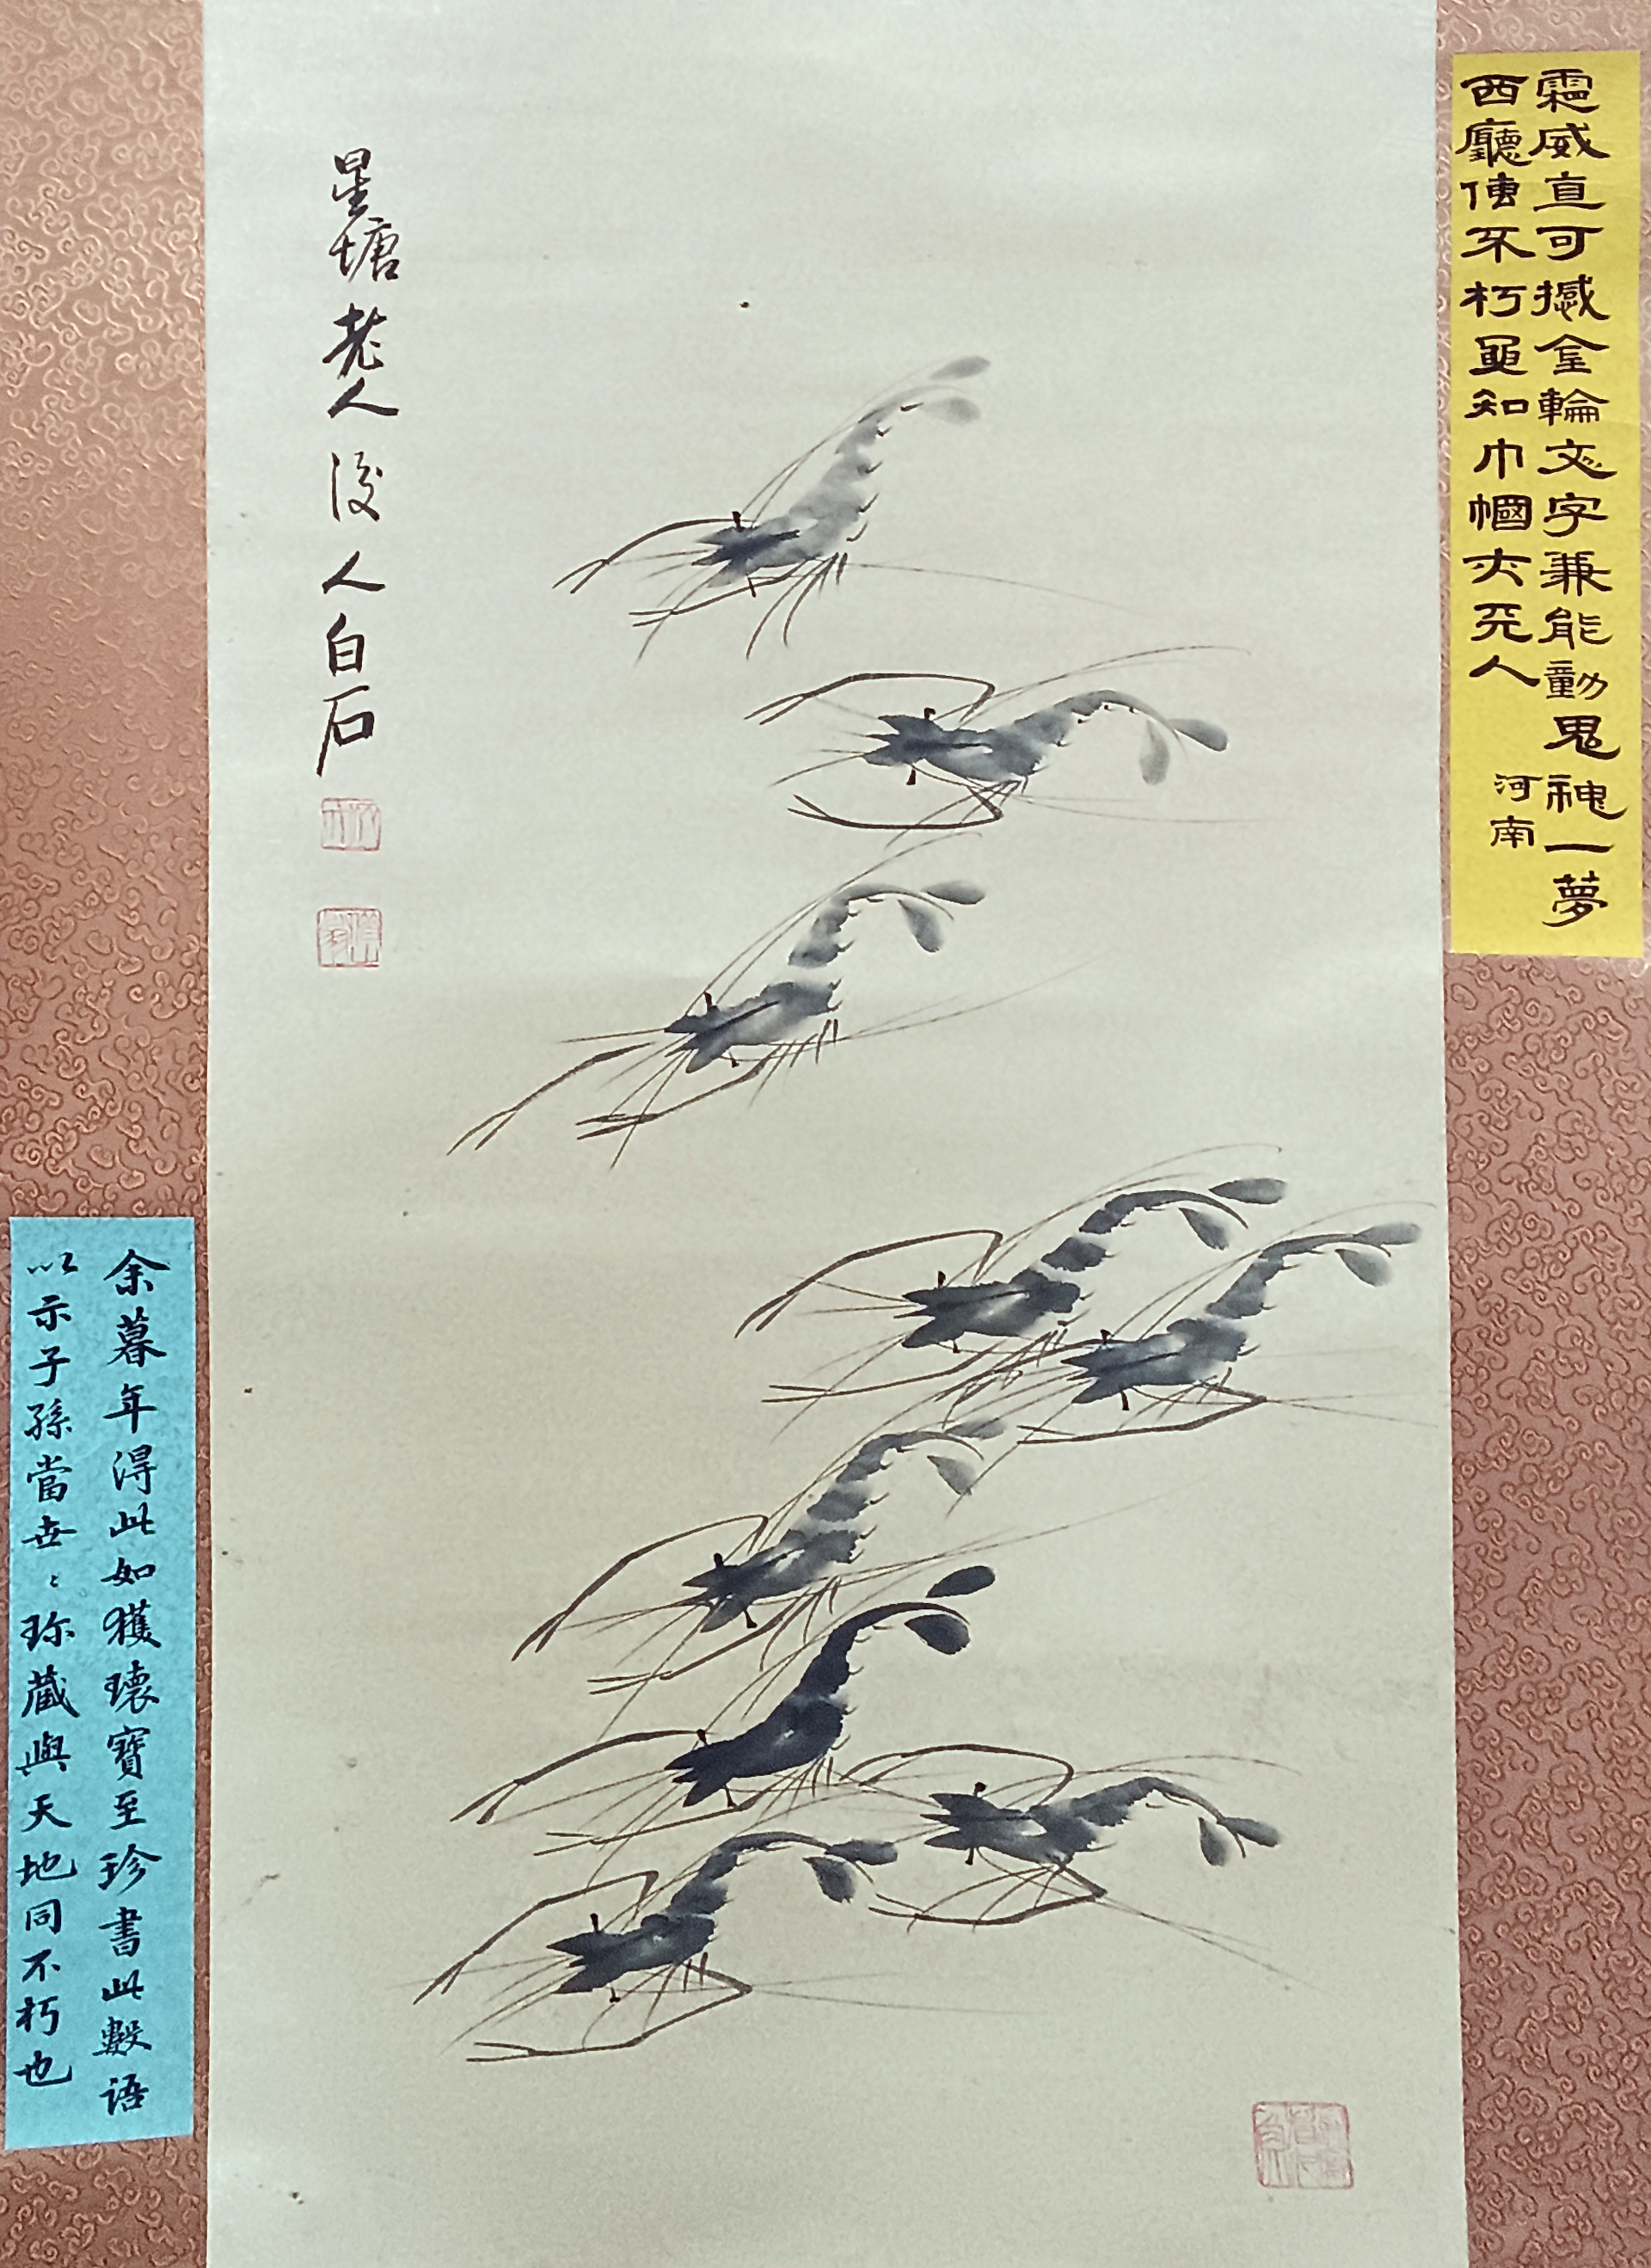 威直可撼金輪文字兼能動鬼神一夢
西廳傳不朽知巾幗人
河南
星塘老人後人白石
余暮年得此如獲瓌寶至珍書此數語
以示子孫當世〻珍藏與天地同不朽也